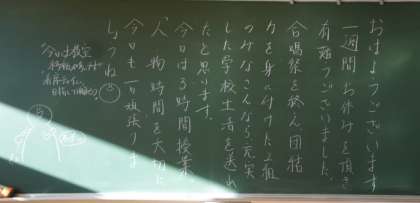 おはようございます
一週間お休みを頂き
有難うございました。
合唱祭を終え団結
力を身に付けた二組
のみなさんなら充実
した学校生活を送れ
たと思います。
今日は3時間授業。
人、物、時間を大切に
今日も一日頑張りま
しょうね
今日は教室